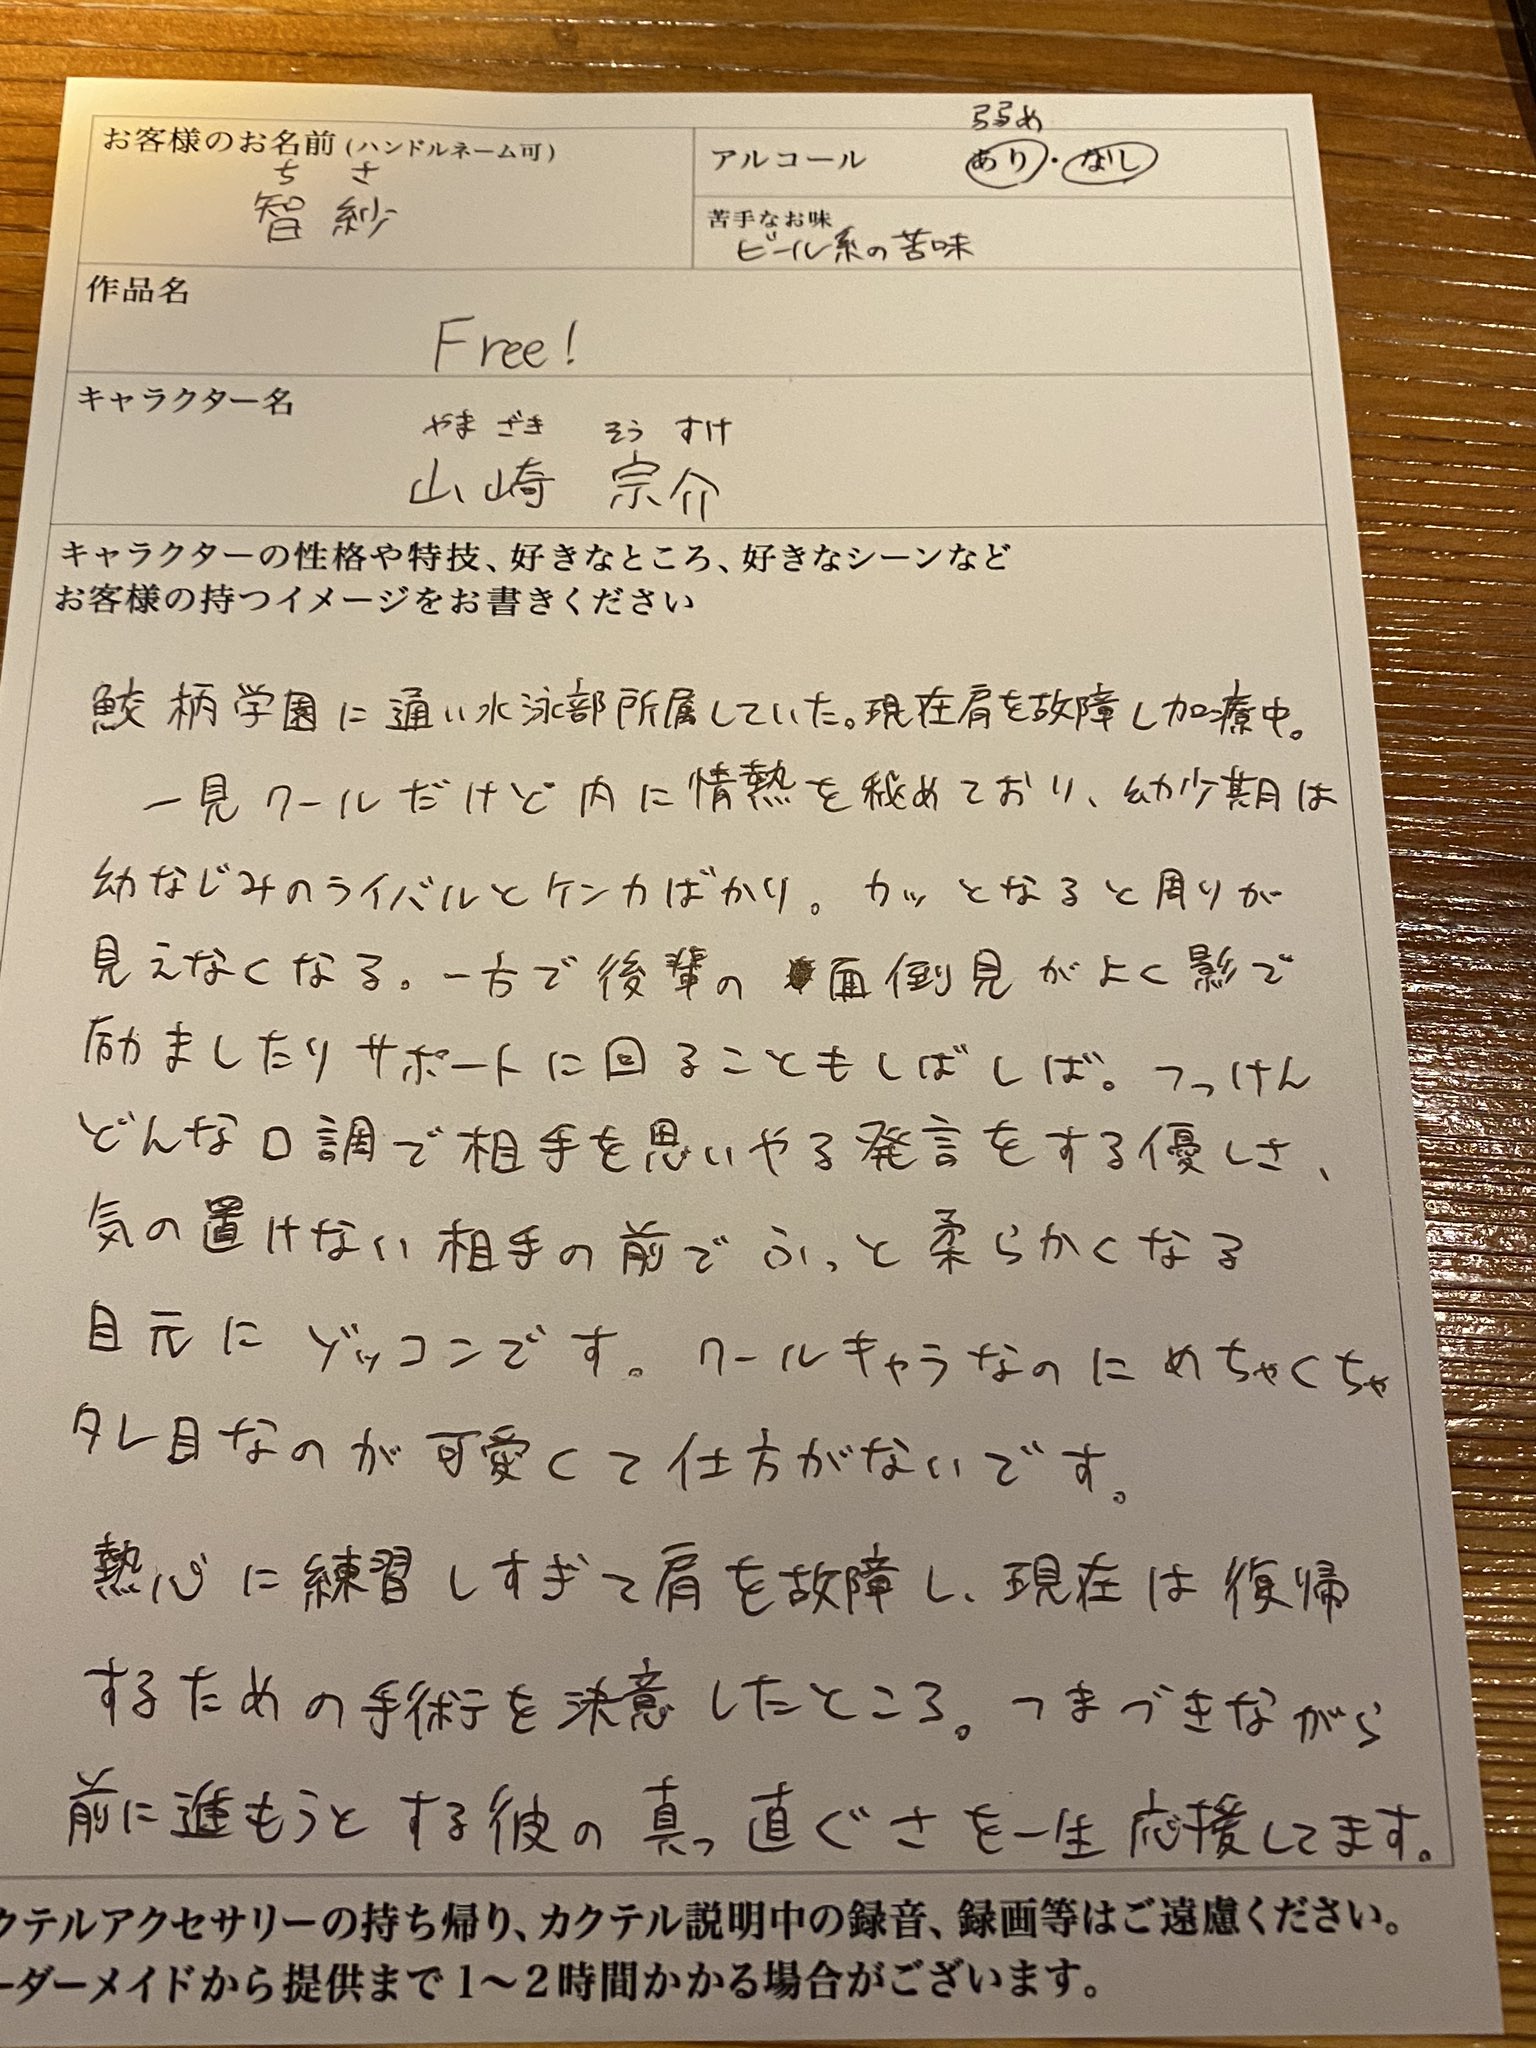 お客様のお名前(ハンドルネーム可)
ちさ
智紗
弱め
アルコール あり・なし
苦手なお味
ビール系の苦味
作品名
Free!
キャラクター名
やまざき そうすけ
山崎 宗介
キャラクターの性格や特技、好きなところ、好きなシーンなど
お客様の持つイメージをお書きください
鮫柄学園に通い水泳部所属していた。現在肩を故障し加療中。
一見クールだけど内に情熱を秘めており、幼少期は
幼なじみのライバルとケンカばかり。カッとなると周りが
見えなくなる。一方で後輩の面倒見がよく影で
励ましたりサポートに回ることもしばしば。つっけん
どんな口調で相手を思いやる発言をする優しさ、
気の置けない相手の前でふっと柔らかくなる
目元にゾッコンです。クールキャラなのにめちゃくちゃ
タレ目なのが可愛くて仕方がないです。
熱心に練習しすぎて肩を故障し、現在は復帰
するための手術を決意したところ。つまづきながら
前に進もうとする彼の真っ直ぐさを一生応援してます。
クテルアクセサリーの持ち帰り、カクテル説明中の録音、録画等はご遠慮ください。
ーダーメイドから提供まで1〜2時間かかる場合がございます。